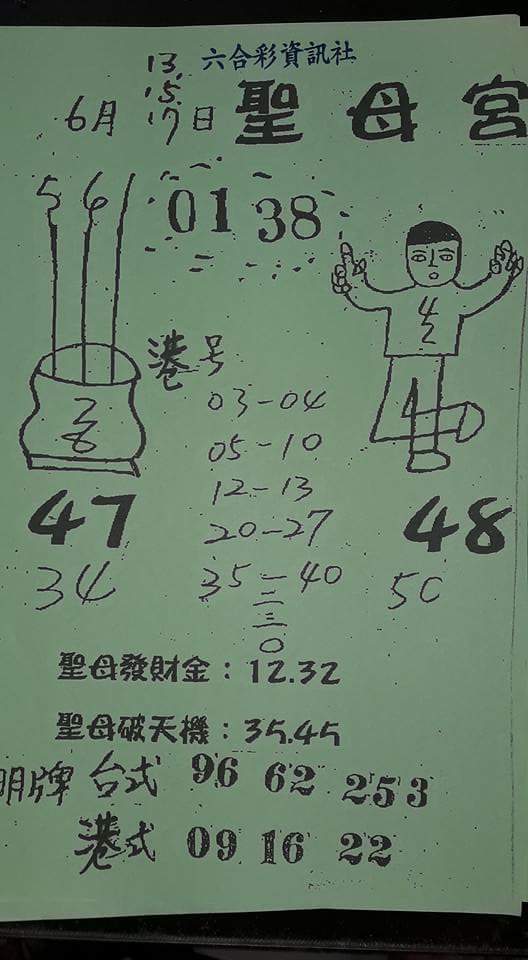 六合彩資訊社
6月 13. 15. 17日 聖母宮
5 6 1
01 38
4
2
港号
03-04
05-10
12-13
20-27
35-40
二
三
0
2
8
47
48
34
50
聖母發財金：12.32
聖母破天機：35.45
明牌 台式 96 62 253
港式 09 16 22